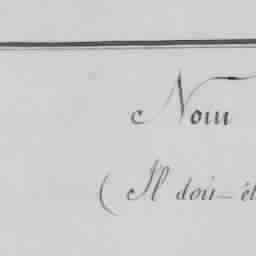 Nom
( Il doit êt